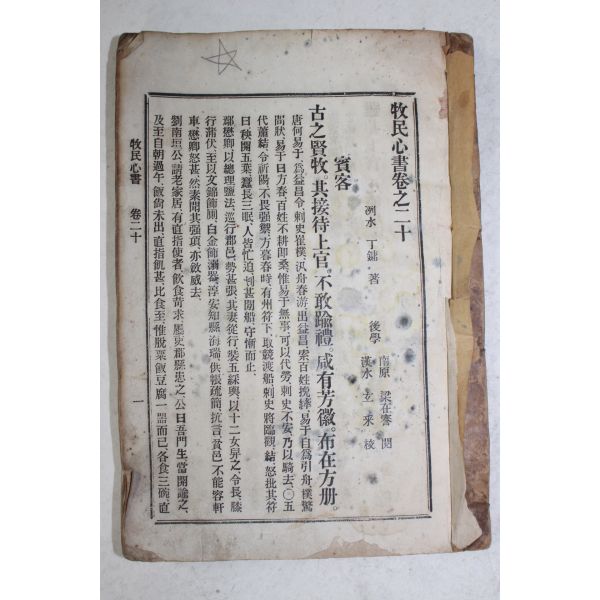 牧民心書卷之二十
洌水 丁鏞 著
後學
南原 梁在謇 閱
漢水 玄采 校
賓客
古之賢牧。其接待上官。不敢踰禮。咸有芳徽。布在方册。
唐何易于、爲益昌令、刺史崔樸、汎舟春游、出益昌、索百姓挽繂、易于自爲引舟、樸驚
問狀、易于曰方春、百姓不耕卽桑、惟易于無事、可以代勞、刺史不安、乃以騎去、〇五
代蕭結、令祈陽、不畏强禦、方暮春時、有州符下、取競渡船、刺史將臨觀、結怒批其符
曰秧開五葉、蠶長三眠、人皆忙迫、剗甚閑船、守慚而止、
鄢懋卿、以總理鹽法、巡行郡邑、勢甚張、其妻從行、裝五綵輿、以十二女舁之、令長、膝
行蒲伏、至以文錦飾厠、白金飾溺器、淳安知縣海瑞、供帳疏簡、抗言、貧邑、不能容軒
車、懋卿怒甚、然素聞其强項、亦斂威去、
劉南垣公、請老家居、有直指使者、飮食苛求、屬吏郡縣患之、公曰吾門生、當開諭之、
及至自朝過午、飯尙未出、直指飢甚、比食至、惟脫粟飯豆腐一器而已、各食三碗、直
牧民心書 卷二十 一